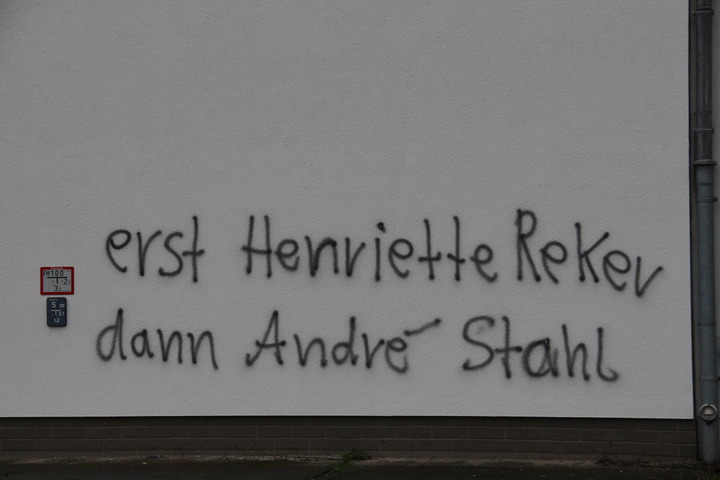 erst Henriette Reker
dann André Stahl
H100